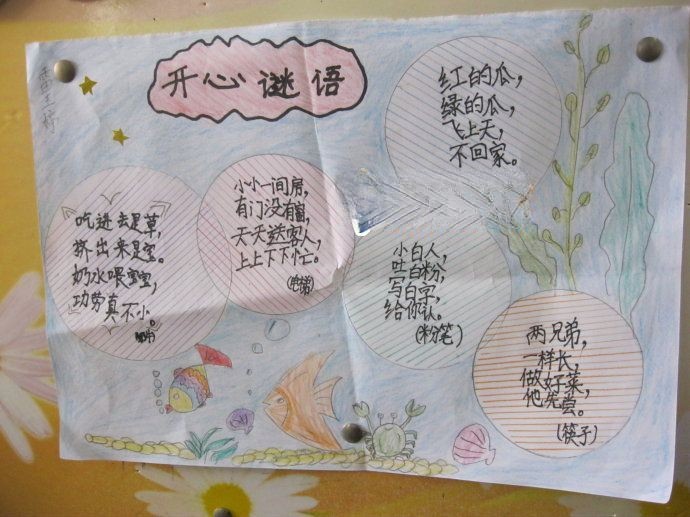 开心谜语
吃进去是草,
挤出来是宝。
奶水喂宝宝,
功劳真不小。
小小一间房,
有门没有窗,
天天送客人,
上上下下忙。
红的瓜,
绿的瓜,
飞上天,
不回家。
小白人,
吐白粉,
写白字,
给你认。
(粉笔)
两兄弟,
一样长,
做好菜,
他先尝。
(筷子)